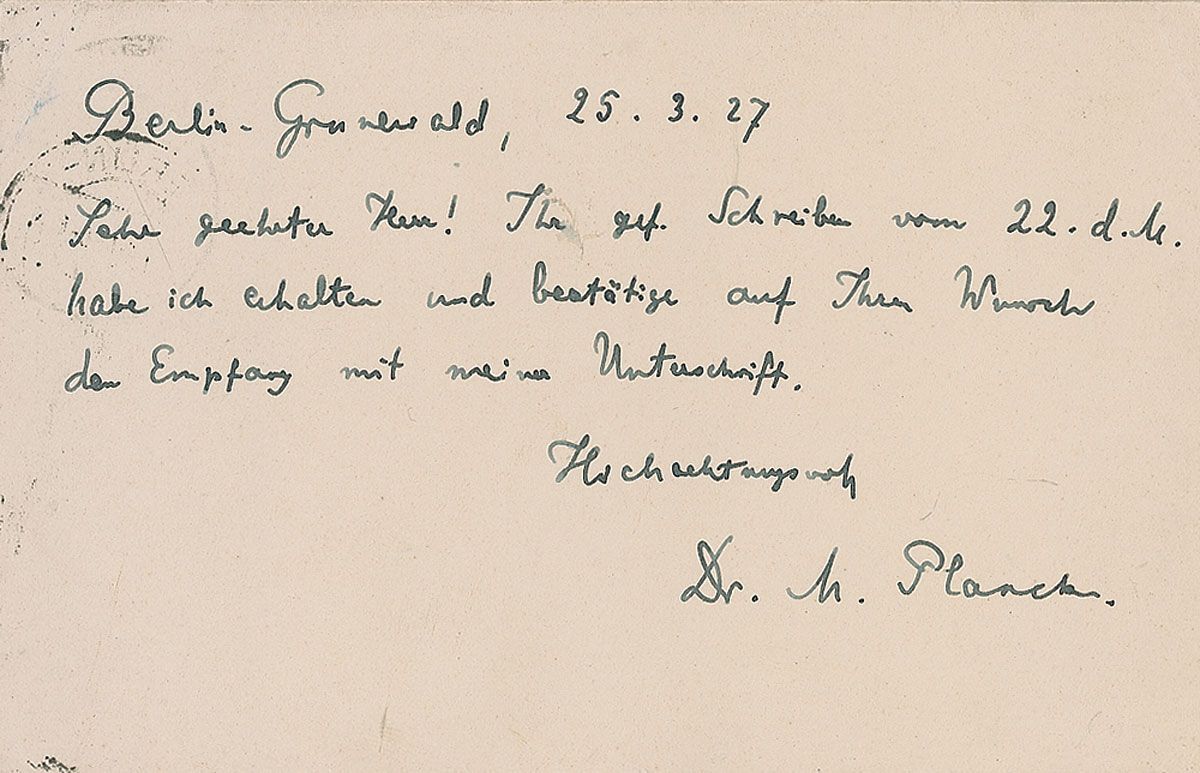 Berlin-Grunewald, 25. 3. 27
Sehr geehrter Herr! Ihr gef. Schreiben vom 22. d. M.
habe ich erhalten und bestätige auf Ihren Wunsch
den Empfang mit meiner Unterschrift.
Hochachtungsvoll
Dr. M. Planck.